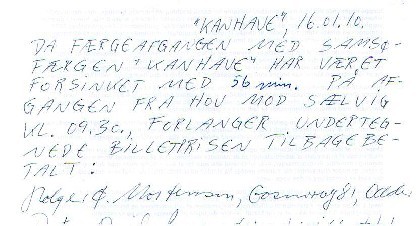 "KANHAVE", 16.01.10.
DA FÆRGEAFGANGEN MED SAMSØ-
FÆRGEN "KANHAVE" HAR VÆRET
FORSINKET MED 56 min. PÅ AF-
GANGEN FRA HOV MOD SÆLVIG
KL. 09.30., FORLANGER UNDERTEG-
NEDE BILLETPRISEN TILBAGEBE-
TALT:
Holger Ø. Mortensen,